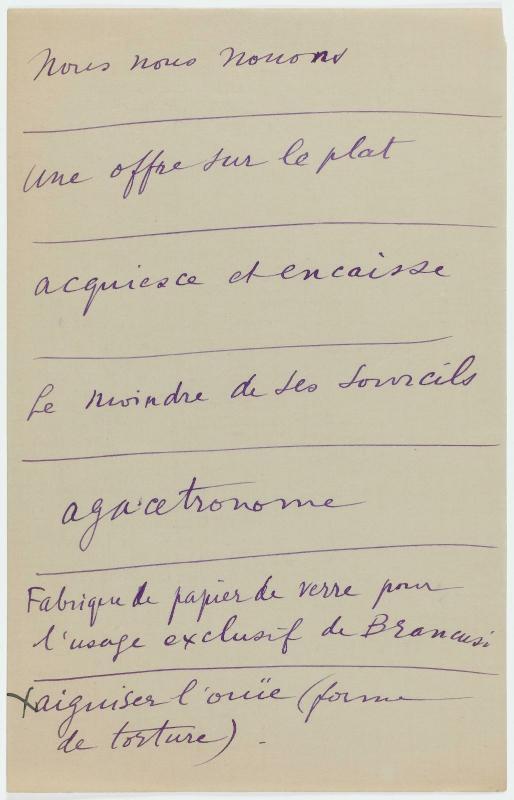 Nous nous nouons
une offre sur le plat
acquiesce et encaisse
Le moindre de ses sourcils
agacetronome
Fabrique de papier de verre pour
l'usage exclusif de Brancusi
x aiguiser l'ouïe (forme
de torture) .